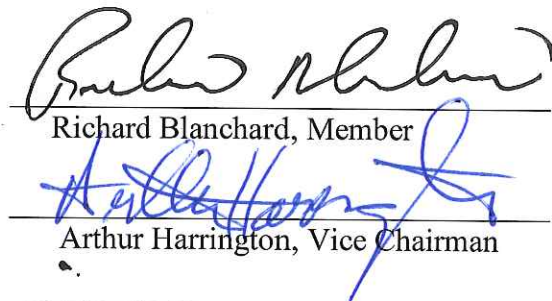 Richard Blanchard, Member
Arthur Harrington
Arthur Harrington, Vice Chairman